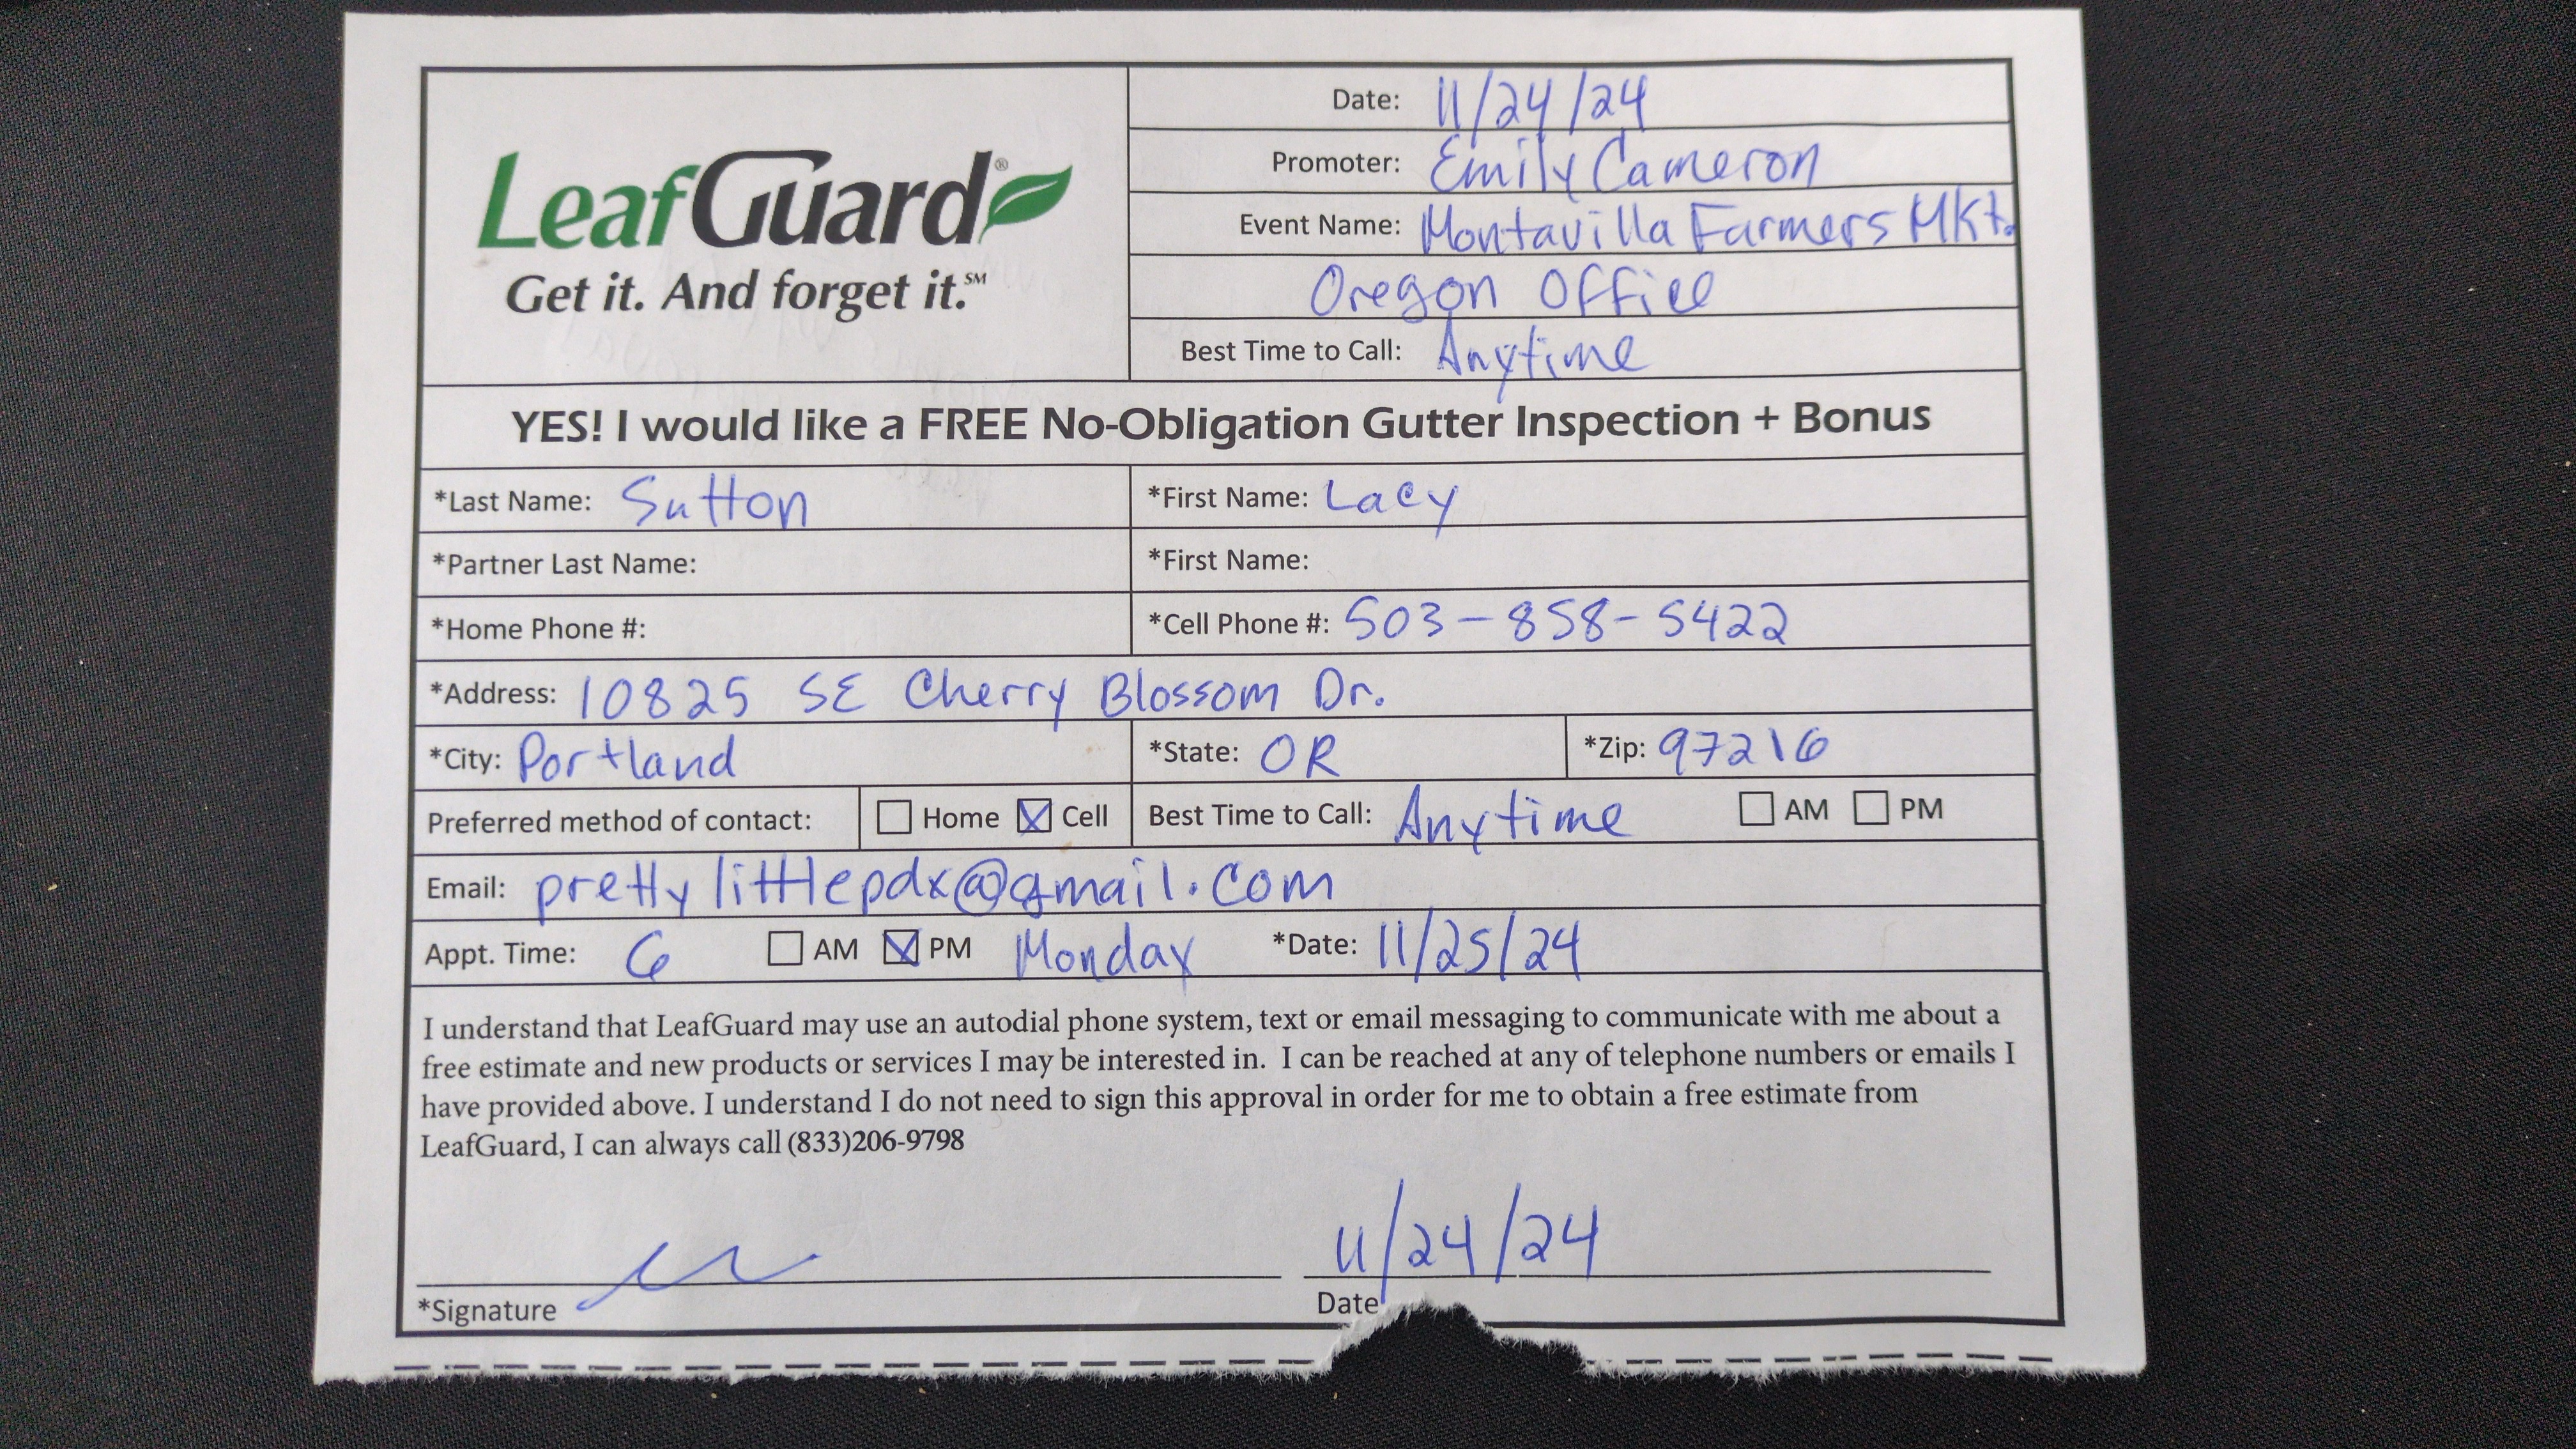 LeafGuard®
Get it. And forget it.℠
Date: 11/24/24
Promoter: Emily Cameron
Event Name: Montavilla Farmers Mkt.
Oregon Office
Best Time to Call: Anytime
YES! I would like a FREE No-Obligation Gutter Inspection + Bonus
*Last Name: Sutton *First Name: Lacy
*Partner Last Name: *First Name:
*Home Phone #: *Cell Phone #: 503-858-5422
*Address: 10825 SE Cherry Blossom Dr.
*City: Portland *State: OR *Zip: 97216
Preferred method of contact: ☐ Home ☒ Cell Best Time to Call: Anytime ☐ AM ☐ PM
Email: prettylittlepdx@gmail.com
Appt. Time: 6 ☐ AM ☒ PM Monday *Date: 11/25/24
I understand that LeafGuard may use an autodial phone system, text or email messaging to communicate with me about a
free estimate and new products or services I may be interested in. I can be reached at any of telephone numbers or emails I
have provided above. I understand I do not need to sign this approval in order for me to obtain a free estimate from
LeafGuard, I can always call (833)206-9798
11/24/24
*Signature Date